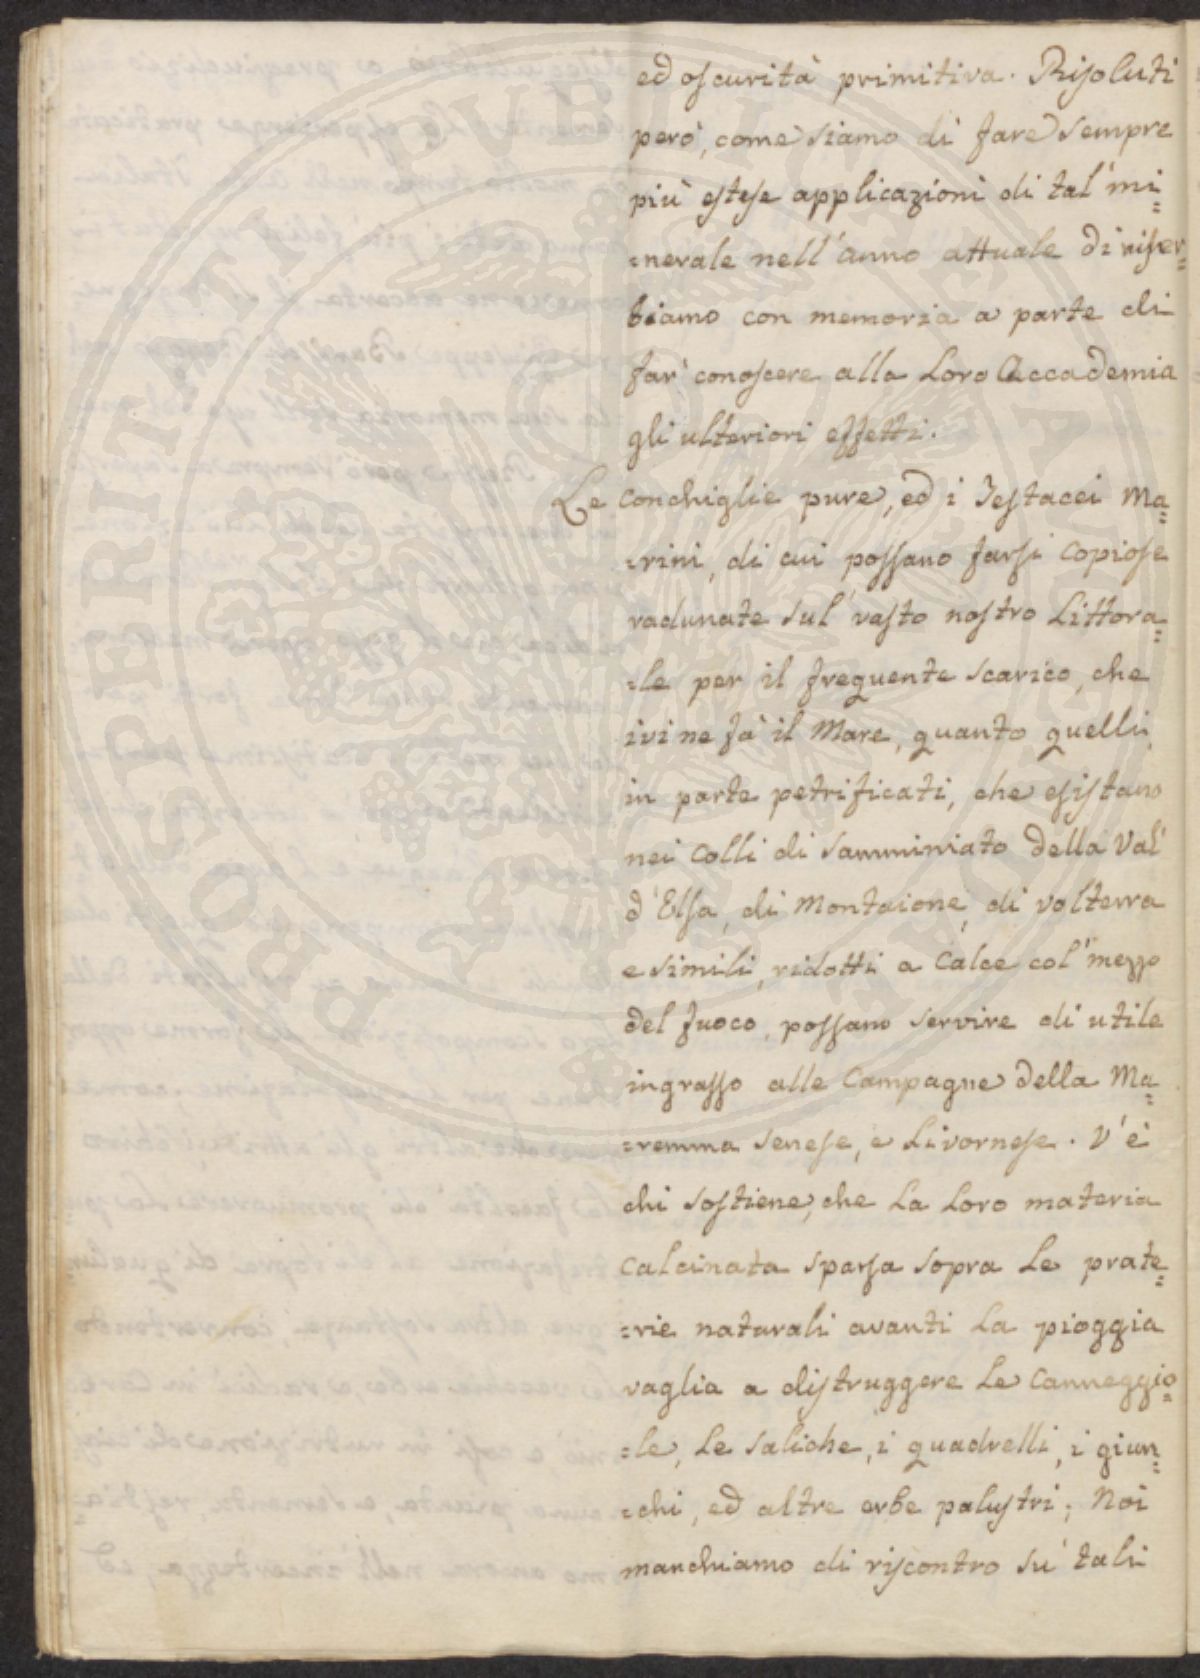 ed oscurità primitiva. Risoluti
però, come siamo di fare sempre
più estese applicazioni di tal' mi=
=nerale nell'anno attuale di riser=
biamo con memoria a parte di
far' conoscere alla Loro Accademia
gli ulteriori effetti.
Le Conchiglie pure, ed i Testacei Ma=
=rini, di cui possano farsi copiose
radunate sul' vasto nostro Littora=
=le per il frequente scarico, che
ivi ne fà il Mare, quanto quelli,
in parte petrificati, che esistano
nei Colli di Samminiato della Val'
d'Elsa, di Montaione, di Volterra
e simili, ridotti a Calce col' mezzo
del fuoco, possano servire di utile
ingrasso alle Campagne della Ma=
=remma Senese, e Livornese. V'è
chi sostiene, che La Loro materia
Calcinata sparsa sopra Le prate=
=rie naturali avanti La pioggia
vaglia a distruggere Le Canneggio=
=le, Le Saliche, i quadrelli, i giun=
=chi, ed altre erbe palustri; Noi
manchiamo di riscontro su' tali
PROSPERITATI PUBLICAE AUGENDAE